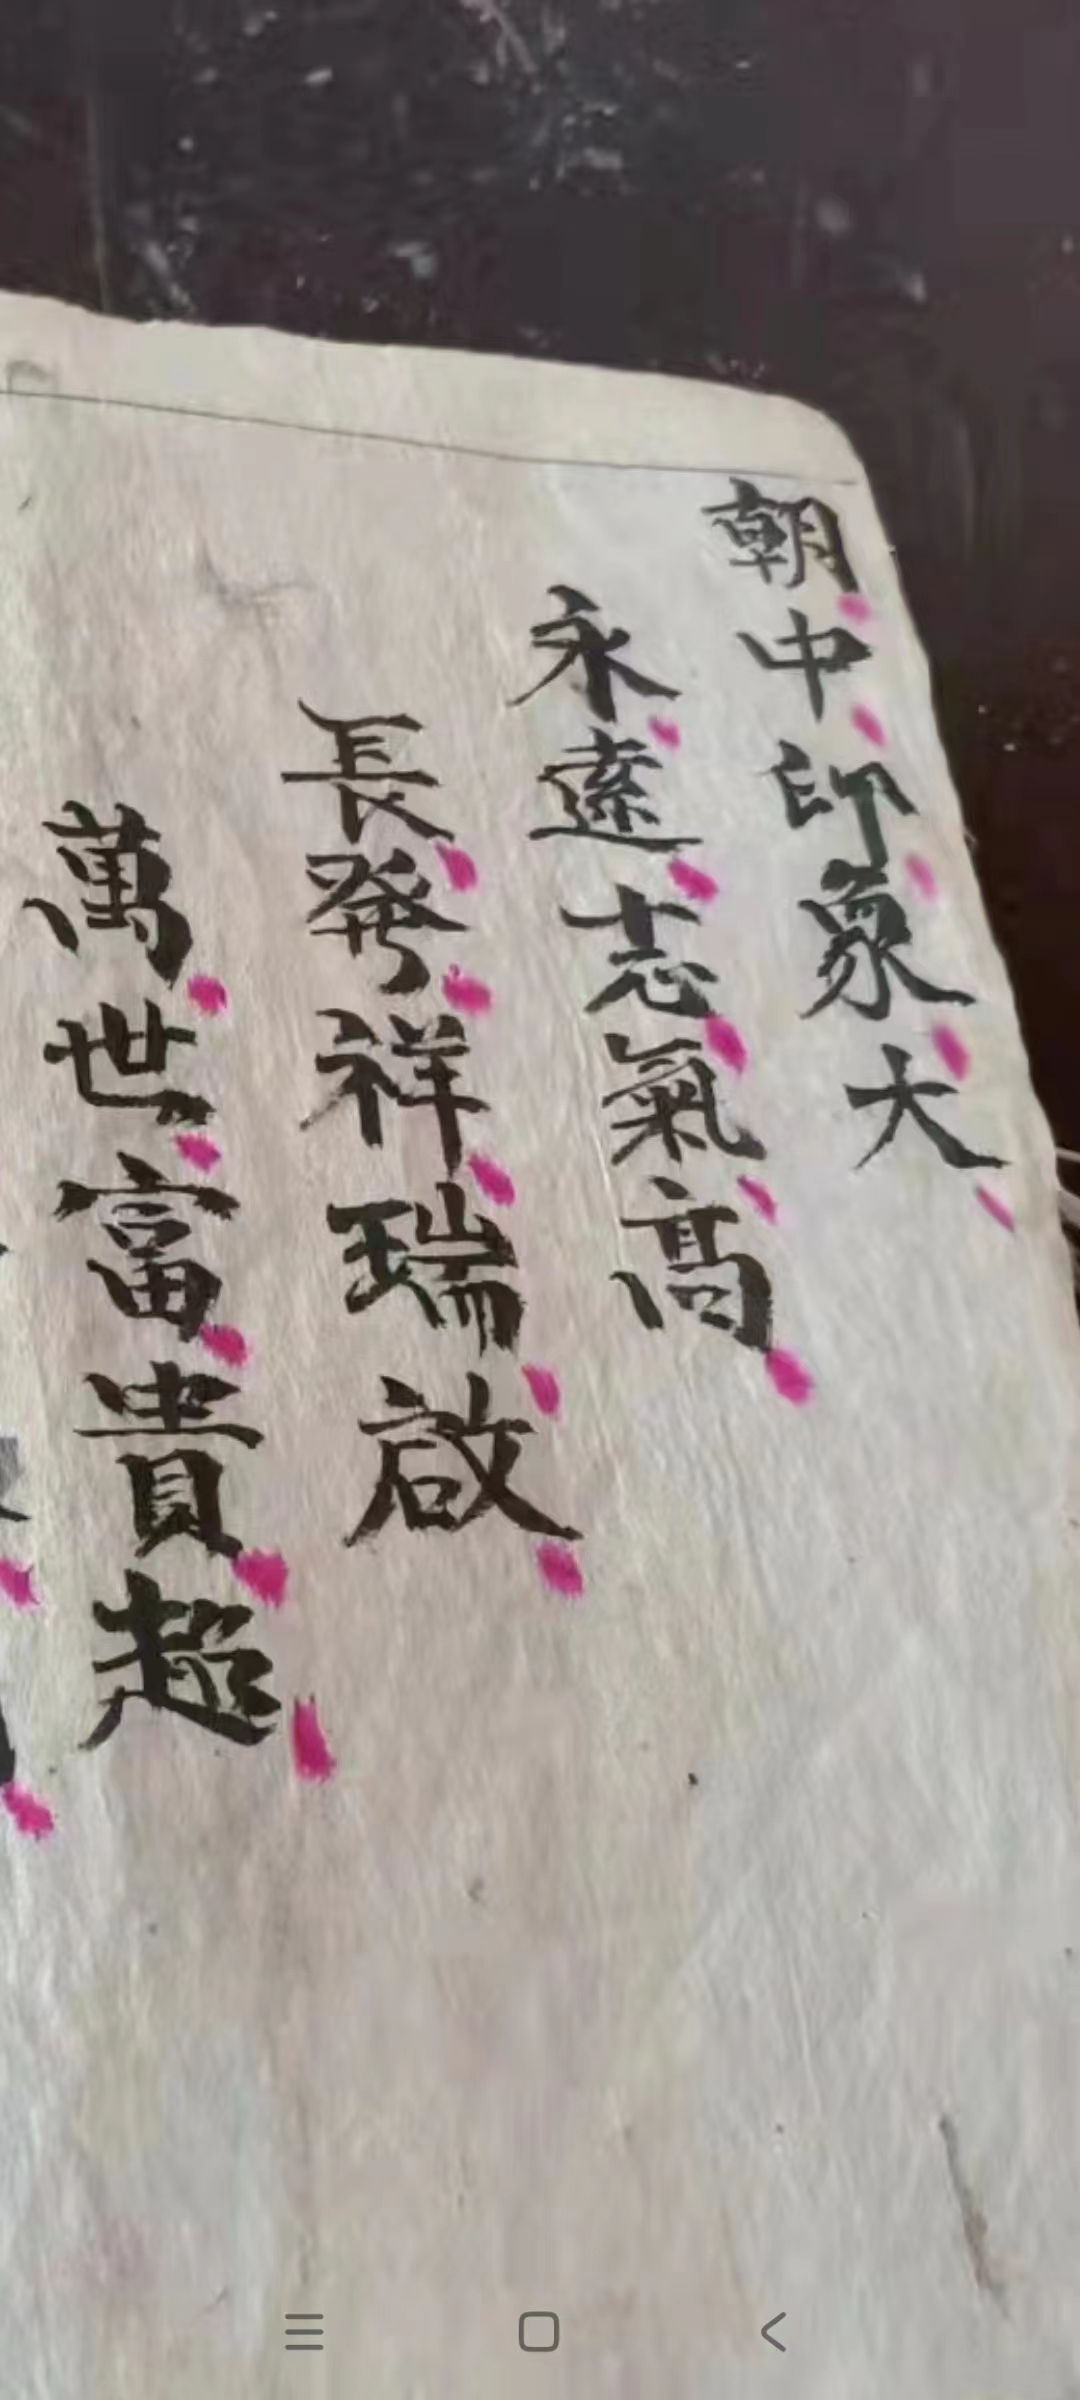 朝中印象大
永遠志氣高
長發祥瑞啟
萬世富貴超